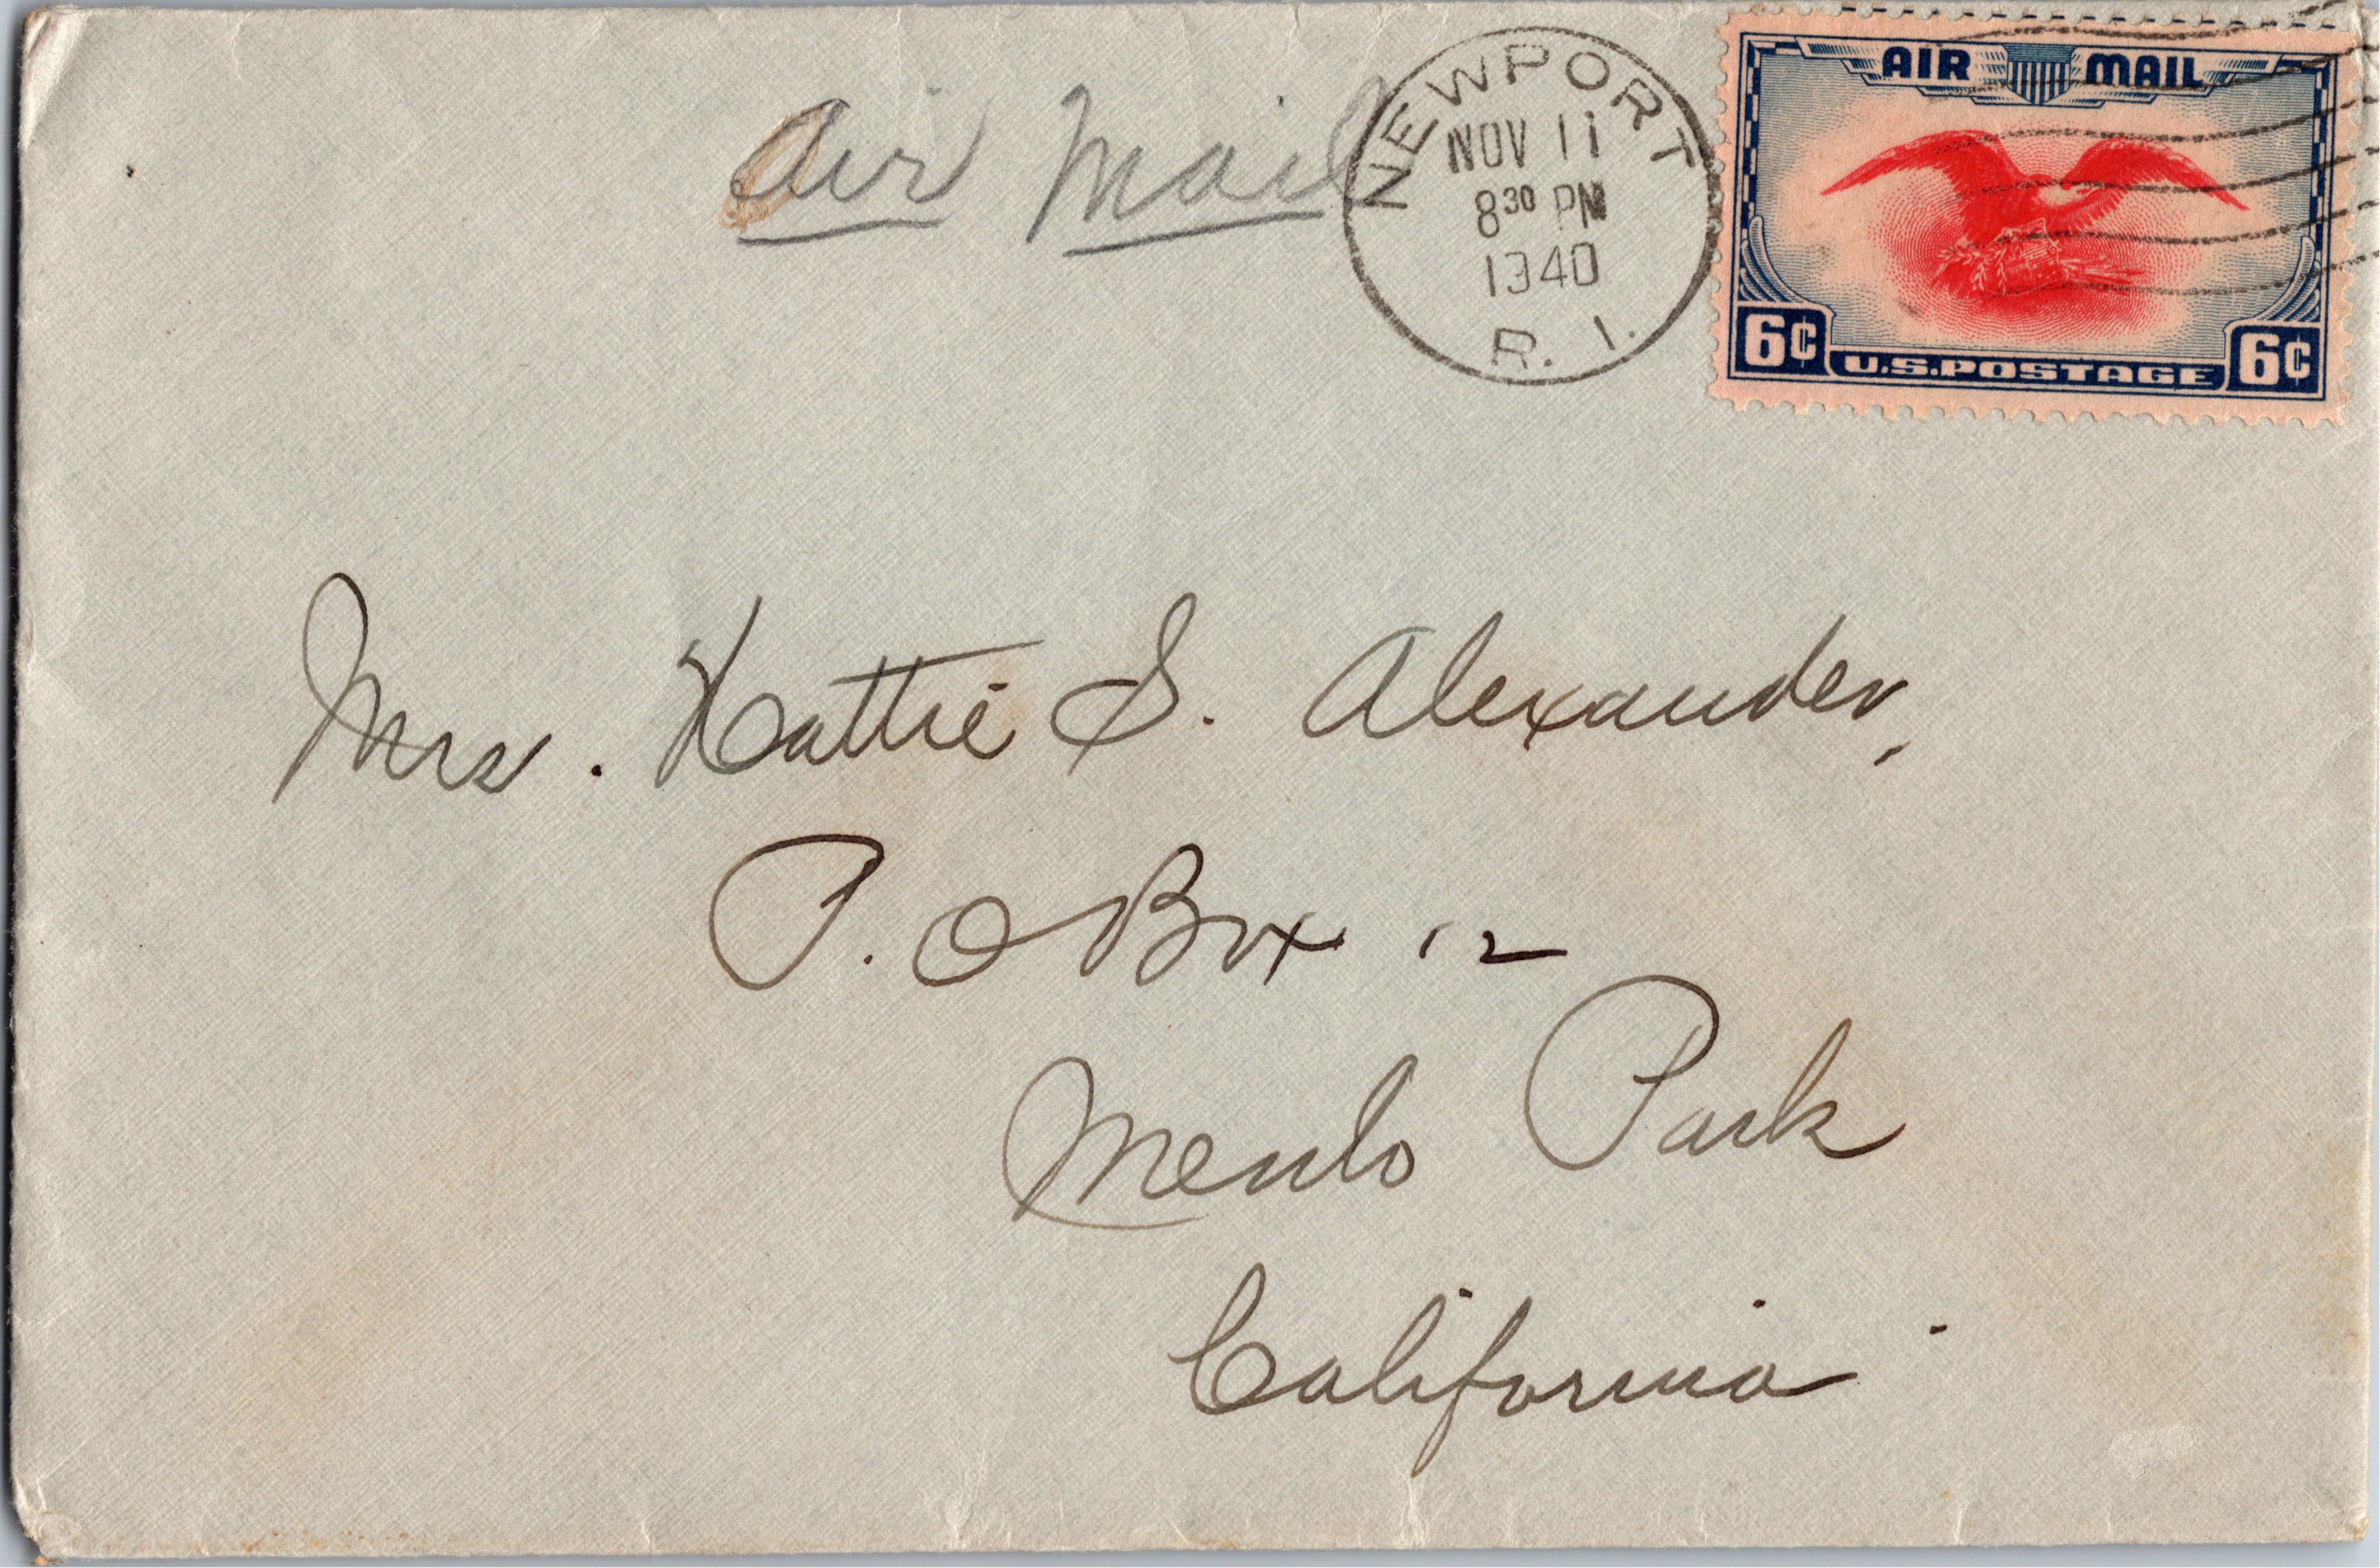 Air Mail
NEWPORT
NOV 11
8 30 PM
1940
R. I.
AIR MAIL
6¢ U.S. POSTAGE 6¢
Mrs. Hattie S. Alexander,
P. O Box 12
Menlo Park
California